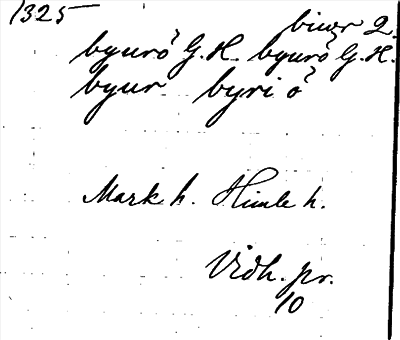 1325
biuer 2.
byurö G. H. byurö G. H.
byur byri ö
Mark h. Himle h.
Vidh. pr.
10